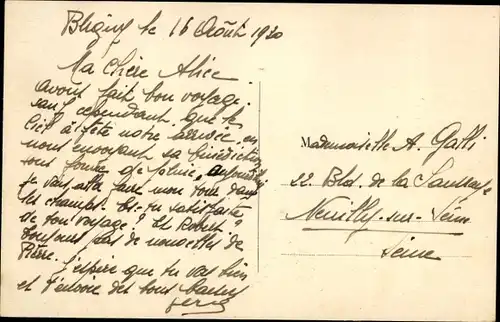 Bligny le 16 Août 1930
Ma Chère Alice.
Avons fait bon voyage.
sauf cependant que le
Ciel à fêté notre arrivée en
nous envoyant sa bénédiction
sous forme de pluie, aujourd'hui
je vais faire mon tour dans
les champs. Es-tu satisfaite
de ton voyage? Et Robert?
toujours pas de nouvelles de
Pierre. J'espère que tu vas bien
et t'envoie des bons baisers
Mademoiselle A. Galli
22 Bld. de la Saussaye
Neuilly-sur-Seine
Seine